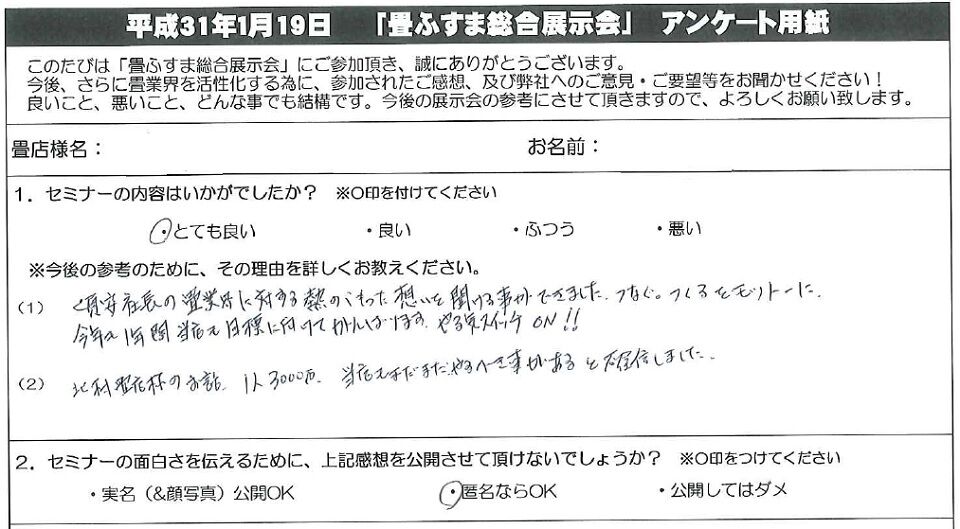 平成31年1月19日 「畳ふすま総合展示会」 アンケート用紙
このたびは「畳ふすま総合展示会」にご参加頂き、誠にありがとうございます。
今後、さらに畳業界を活性化する為に、参加されたご感想、及び弊社へのご意見・ご要望等をお聞かせください！
良いこと、悪いこと、どんな事でも結構です。今後の展示会の参考にさせて頂きますので、よろしくお願い致します。
畳店様名： お名前：
1．セミナーの内容はいかがでしたか？ ※○印を付けてください
・とても良い ・良い ・ふつう ・悪い
※今後の参考のために、その理由を詳しくお教えください。
(1) 社長の畳業界に対する熱のこもった想いを聞ける事ができました。つなぐ。つくるをモットーに、
今年の1年間当店も目標に付けてがんばります。やる気スイッチON!!
(2) 北村畳店様のお話、1人3000万、当店もまだまだやるべき事があると確信しました。
2．セミナーの面白さを伝えるために、上記感想を公開させて頂けないでしょうか？ ※○印をつけてください
・実名（&顔写真）公開OK ・匿名ならOK ・公開してはダメ